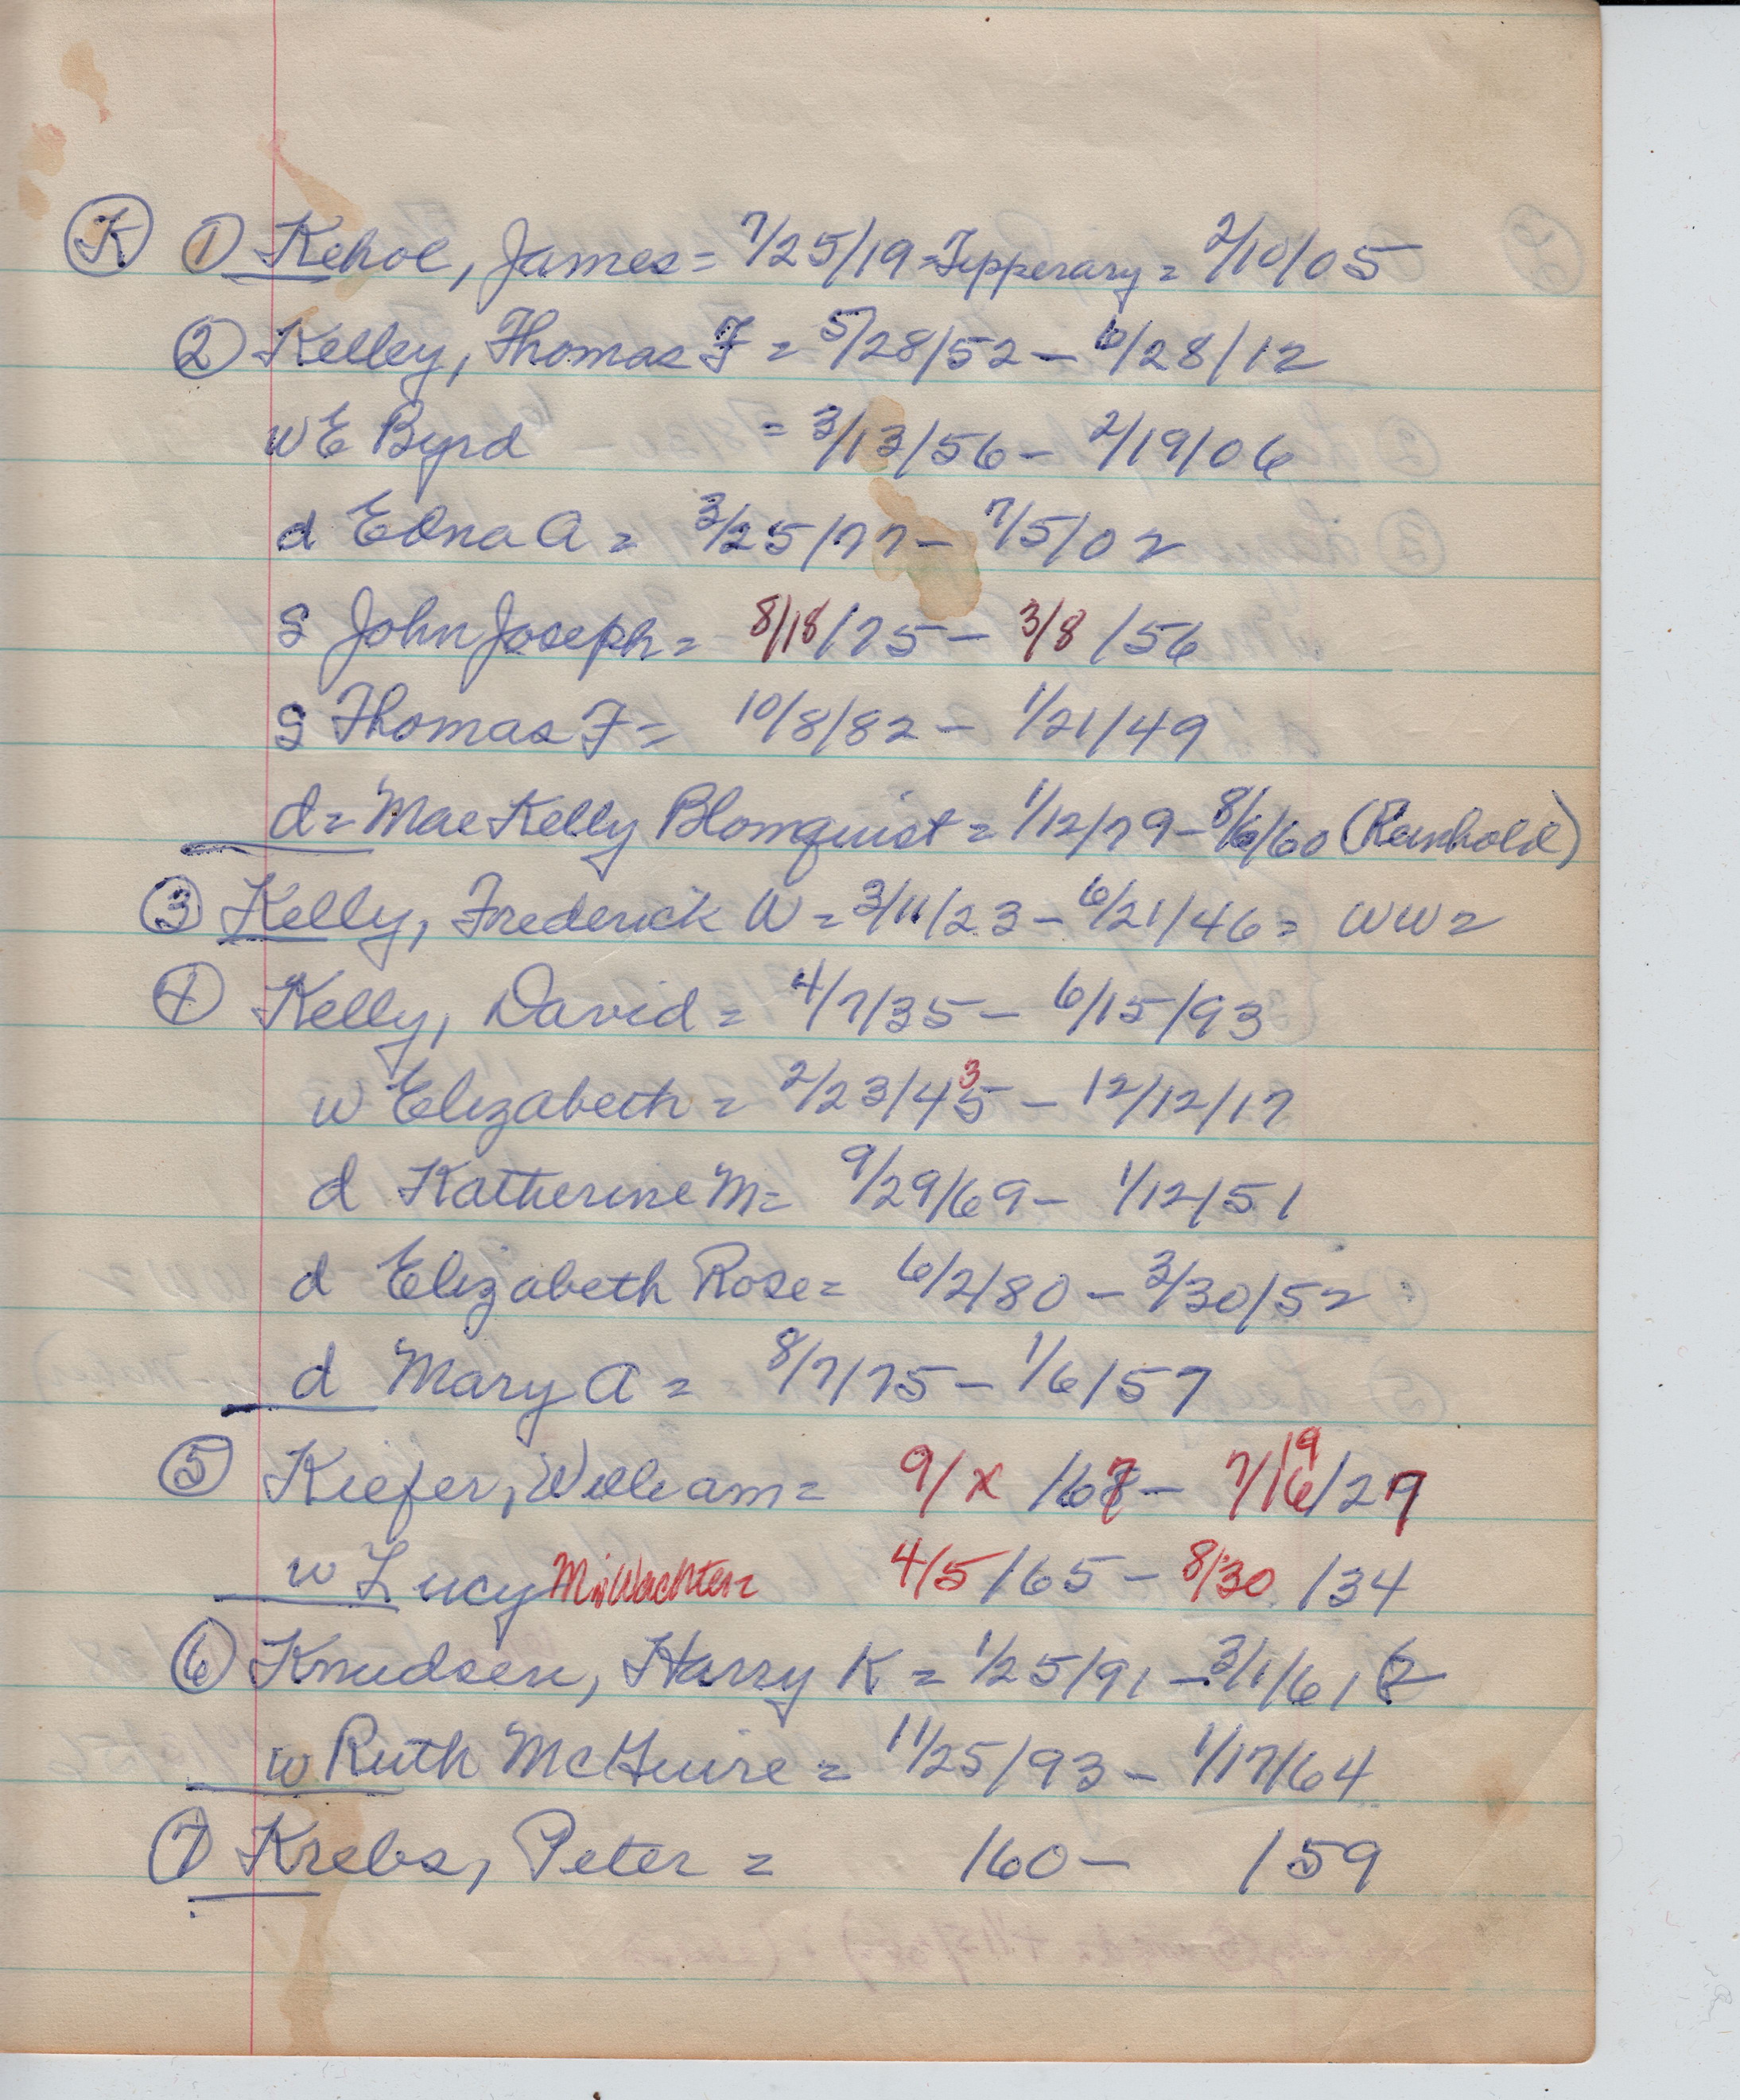 K ① Kehoe, James = 7/25/19 = Tipperary = 2/10/05
② Kelley, Thomas F = 5/28/52 - 6/28/12
w E Byrd = 3/13/56 - 2/19/06
d Edna A = 3/25/77 - 7/5/02
S John Joseph = 8/18/75 - 3/8/56
S Thomas F = 10/8/82 - 1/21/49
d = Mae Kelly Blomquist = 1/12/79 - 8/6/60 (Reinhold)
③ Kelly, Frederick W = 3/11/23 - 6/21/46 = WW2
④ Kelly, David = 4/7/35 - 6/15/93
w Elizabeth = 2/23/45 3 - 12/12/17
d Katherine M = 9/29/69 - 1/12/51
d Elizabeth Rose = 6/2/80 - 3/30/52
d Mary A = 8/7/75 - 1/6/57
⑤ Kiefer, William = 9/x/67 - 7/16 19/29
w Lucy M. Wachter = 4/5/65 - 8/30/34
⑥ Knudsen, Harry K = 1/25/91 - 3/1/61
w Ruth McGuire = 11/25/93 - 1/17/64
⑦ Krebs, Peter = /60 - /59